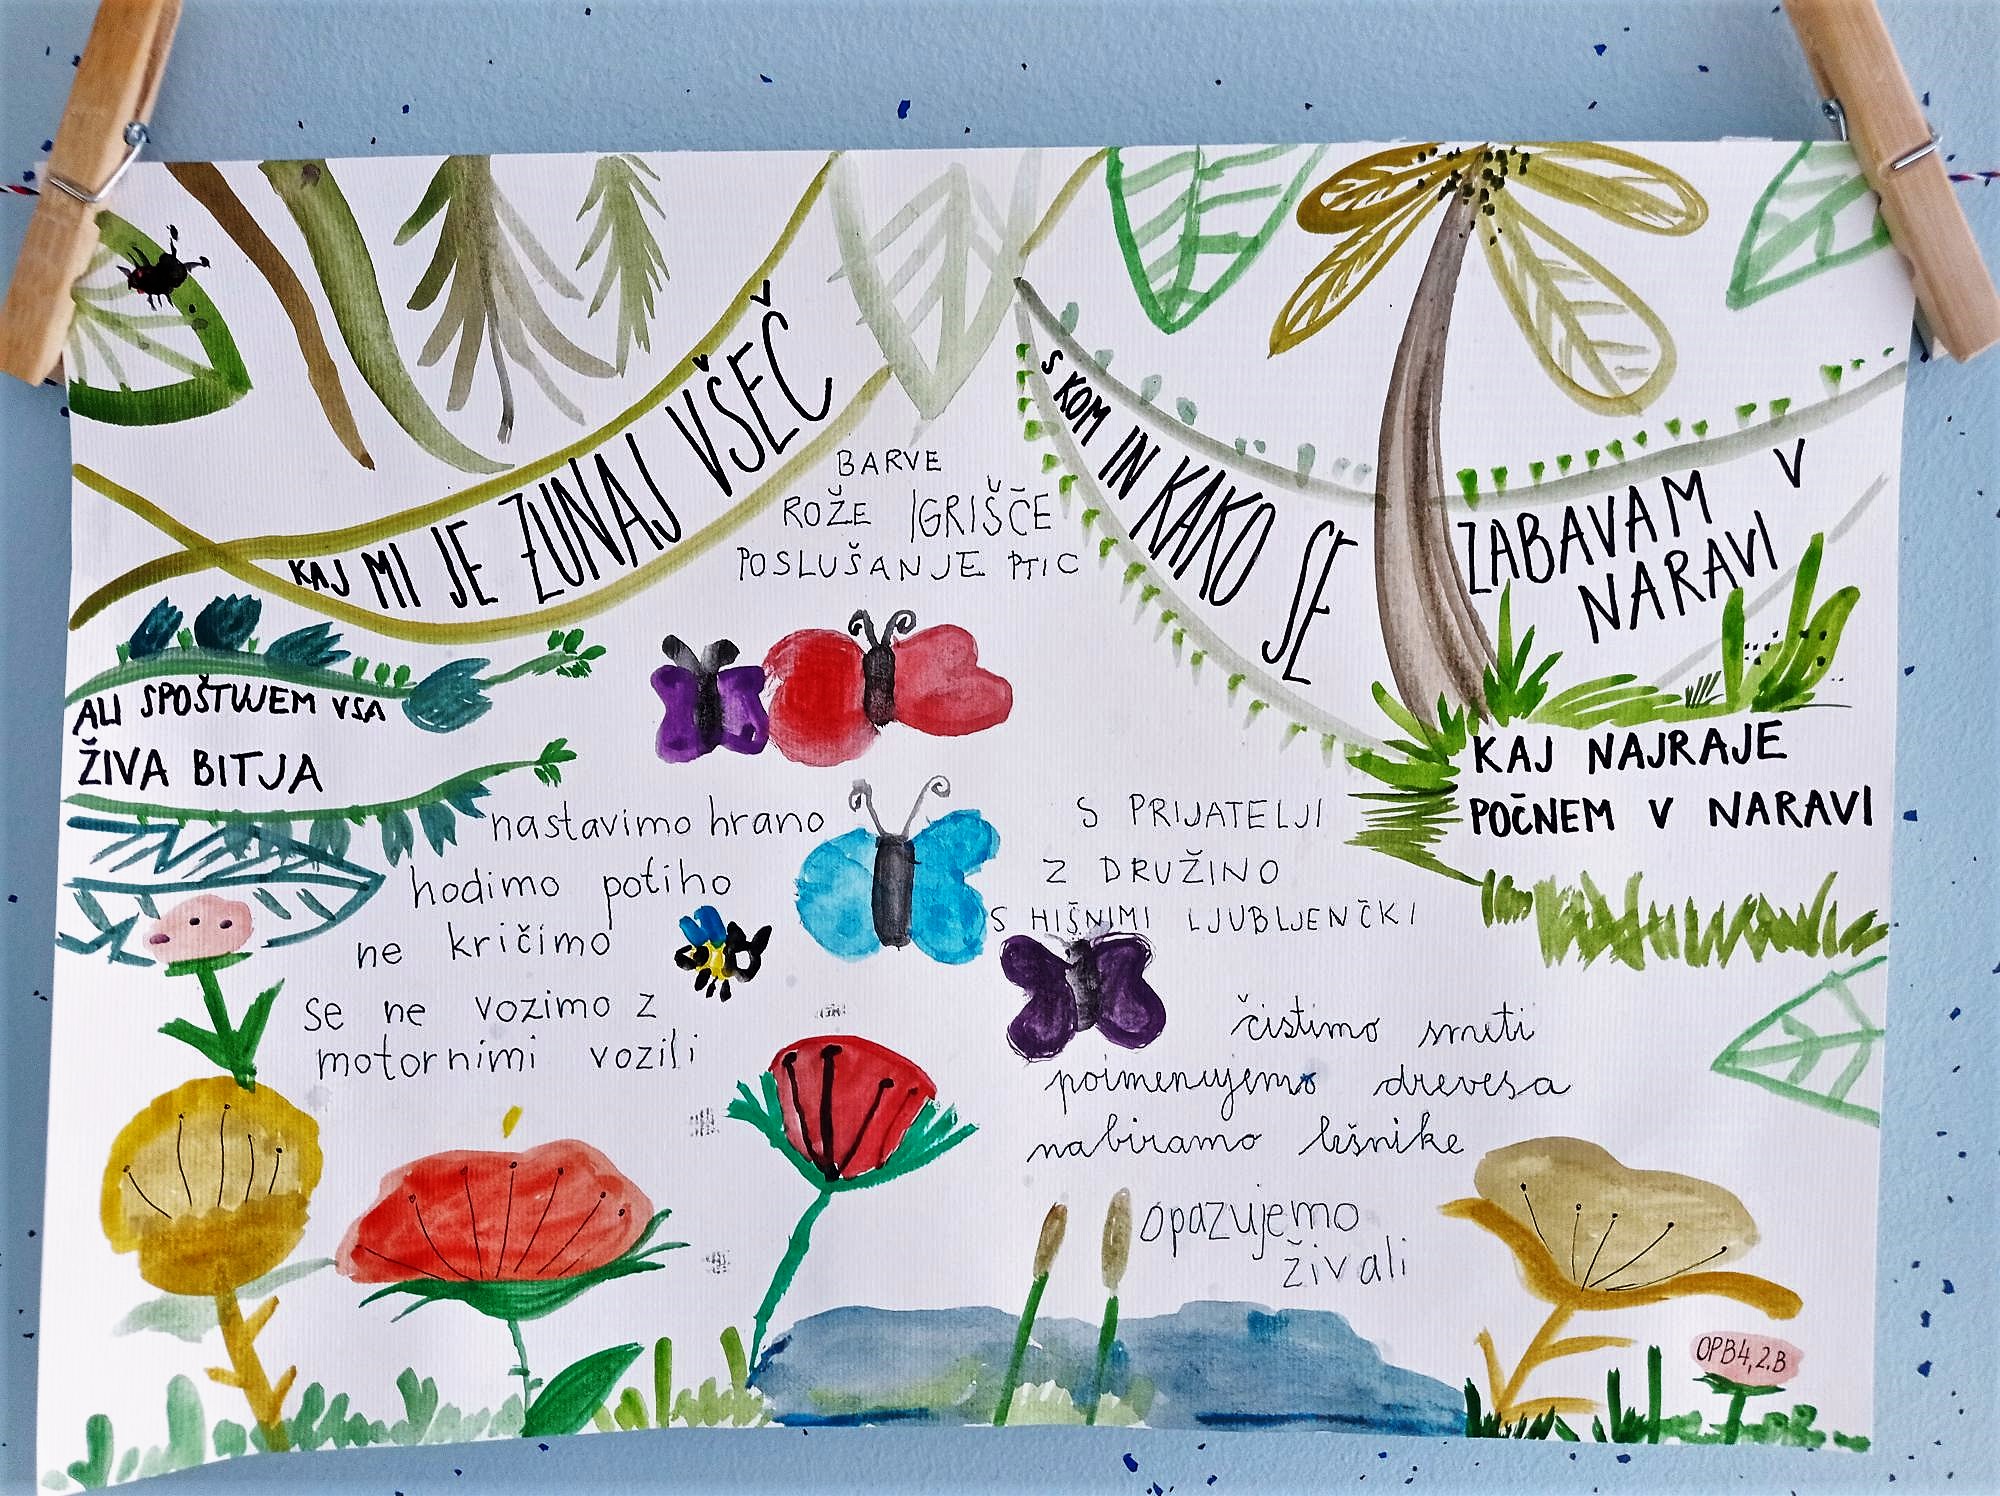 KAJ MI JE ZUNAJ VŠEČ
BARVE
ROŽE IGRIŠČE
POSLUŠANJE PTIC
S KOM IN KAKO SE
ZABAVAM V
NARAVI
ALI SPOŠTUJEM VSA
ŽIVA BITJA
nastavimo hrano
hodimo potiho
ne kričimo
se ne vozimo z
motornimi vozili
S PRIJATELJI
Z DRUŽINO
S HIŠNIMI LJUBLJENČKI
KAJ NAJRAJE
POČNEM V NARAVI
čistimo smeti
poimenujemo drevesa
nabiramo lešnike
opazujemo
živali
OPB4, 2.B